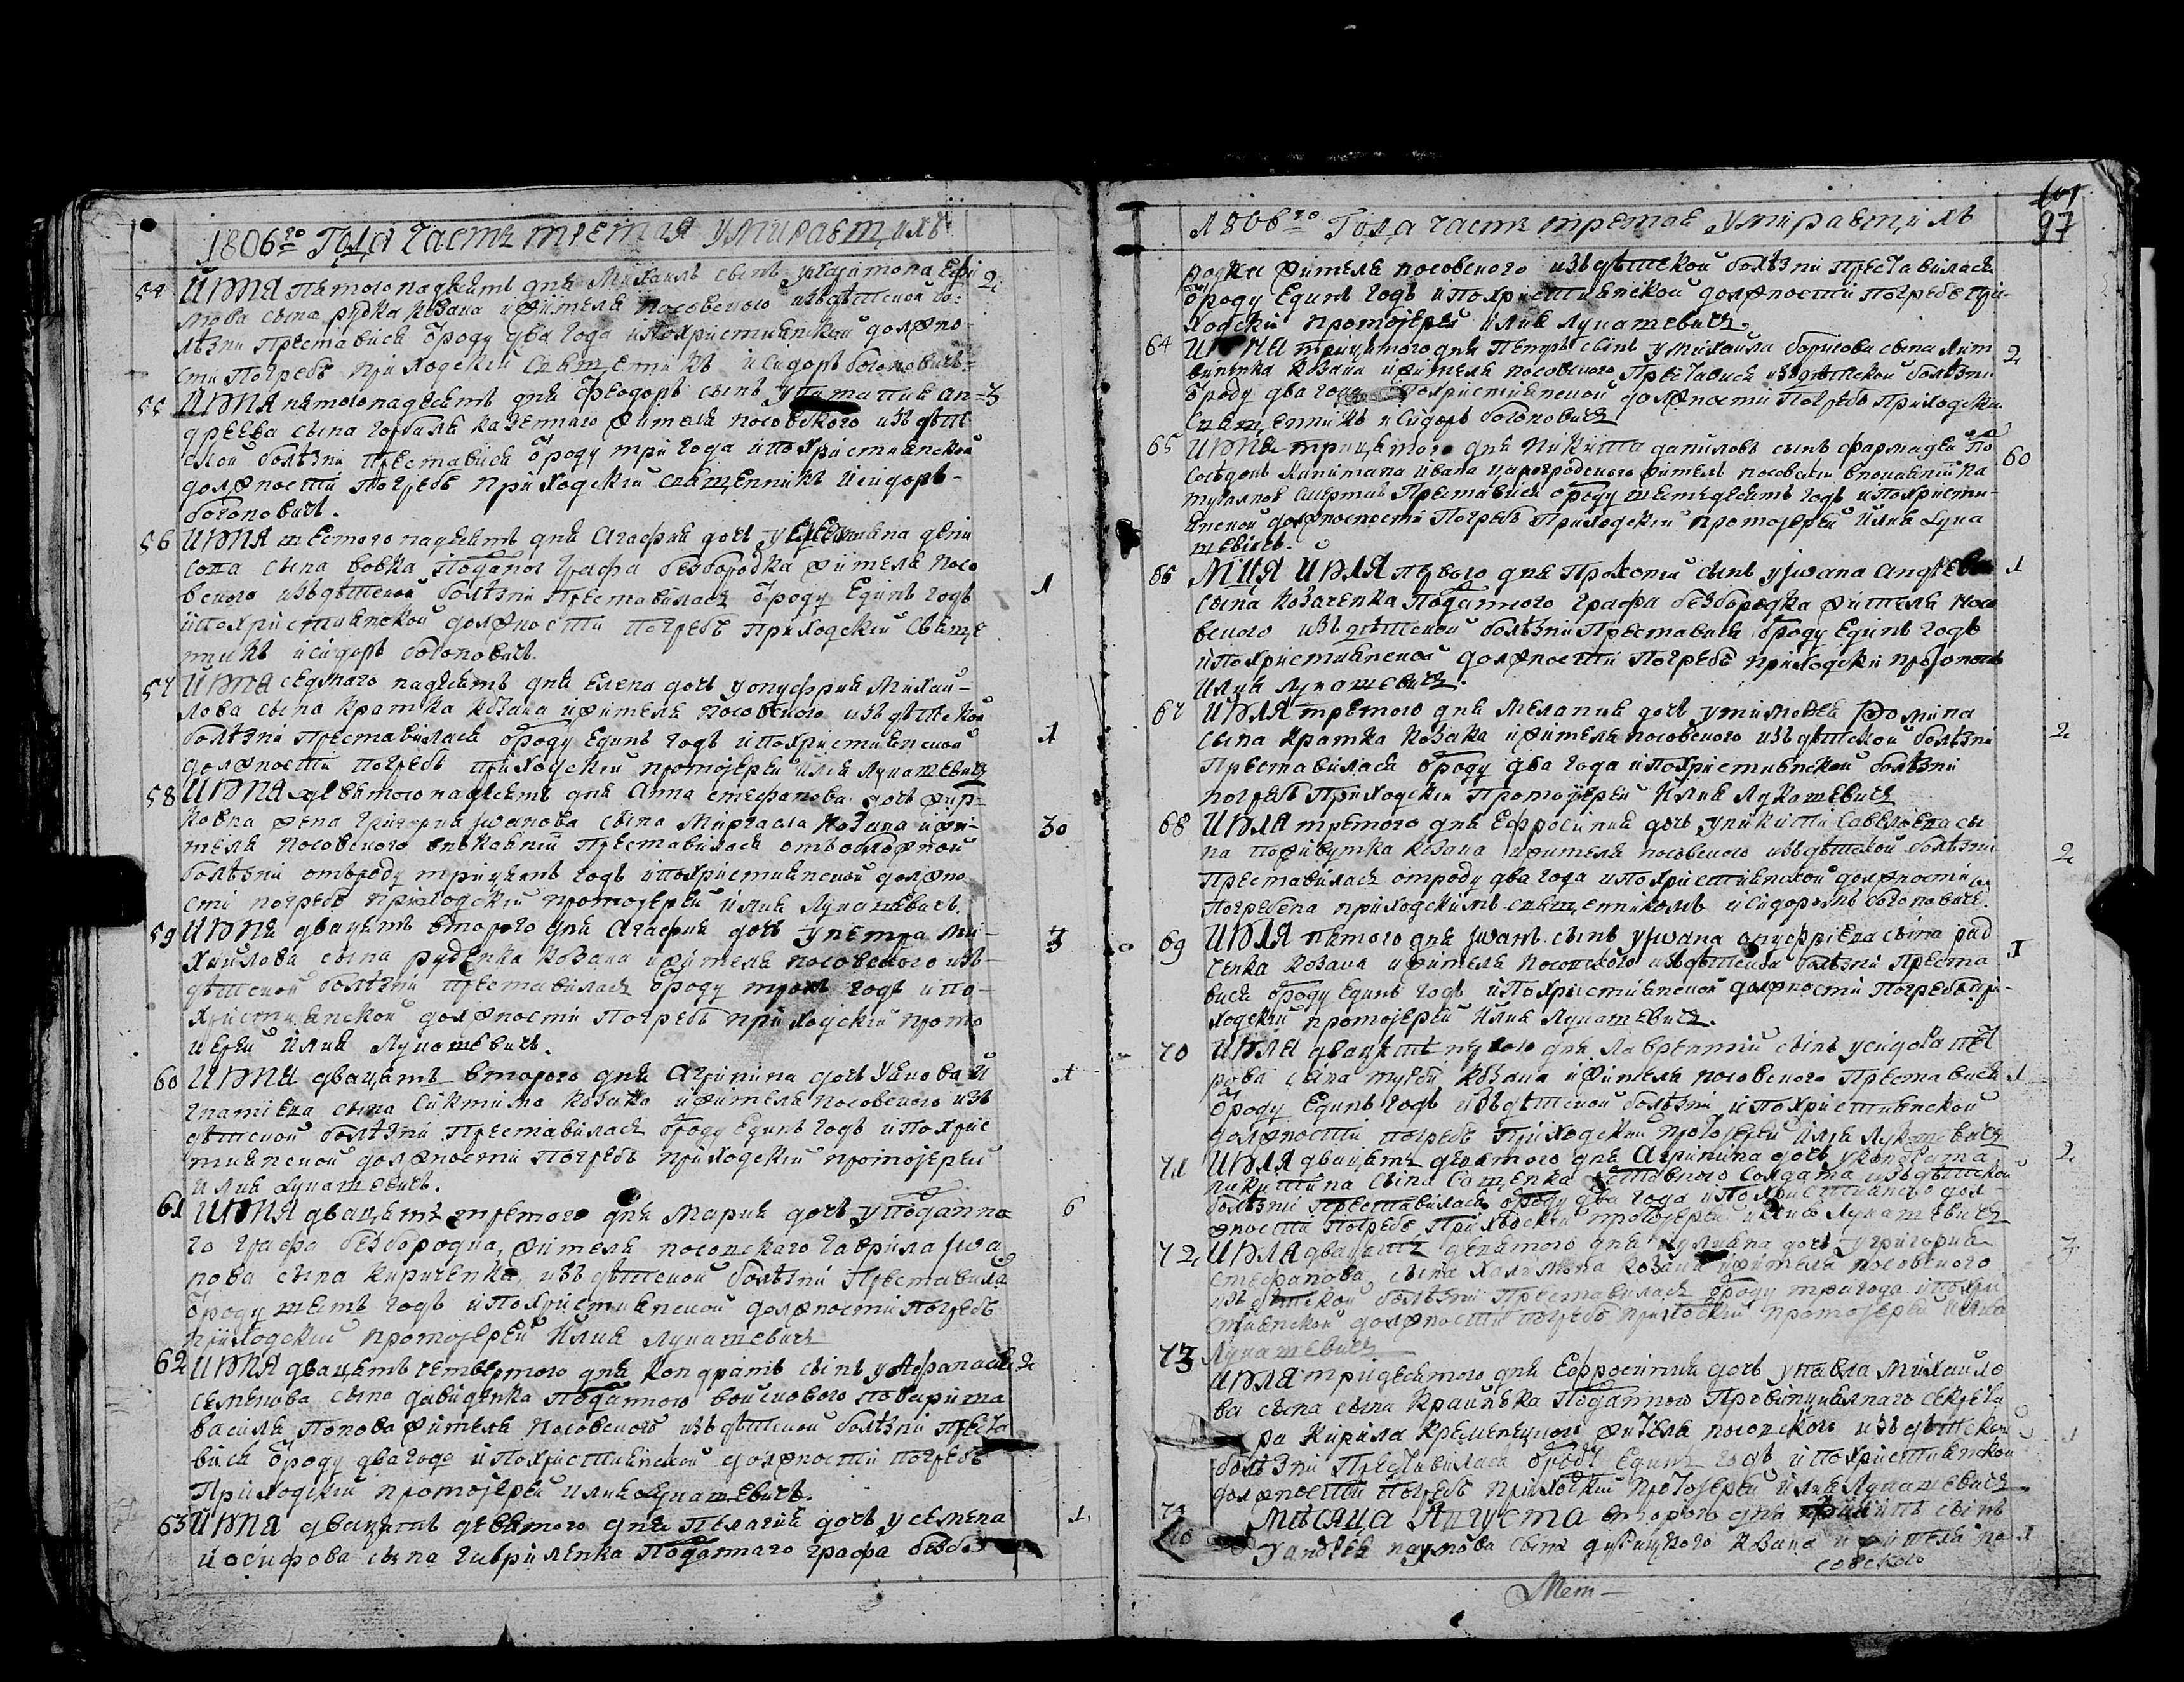 1806го Года часть третия умирает, ихъ
54 Июня пятогонадцеять дня Михаилъ сынъ у Харитона Ефи 2
мова сына рудка козака и жителя носовского изъ дѣтской бо-
лѣзни преставися ѿроду два года и похристиянской должно-
сти погребъ приходский священикъ исидоръ богоновичъ
55 Июня пятогонадцеять дня Феодоръ сынъ ан- 3
дреева сына горбаля казенного жителя носовского изъ дѣт
ской болѣзни преставися ѿроду три года и похристиянской
должности погребъ приходский священникъ исидоръ
богоновичъ.
56 Июня шестогонадцеять дня Агафия дочь у дени
сова сына вовка подданог графа безбородка жителя носо
вского изъ дѣтской болѣзни преставилась ѿроду единъ годъ 1
и похристиянской должности погребъ приходский свяще
никъ исидоръ богоновичъ.
57 Июня седмагонадцеять дня Елена дочь у онуфрия Михай-
лова сына кратка козака и жителя носовского изъ дѣтской
болѣзни преставилася ѿроду единъ годъ и похристиянской 1
должности погребъ приходский протоиерей илия Лукашевичъ
58 Июня девятогонадцеять дня Анна стефанова дочь
ковна жена григория иванова сына козака и жи- 30
теля носовского покаянии преставилася отъ
болѣзни отъроду тридцять годъ и похристиянской должно
сти погребъ приходский протоиерей илия Лукашевичъ.
59 Июня двадцять второго дня Агафия дочь у петра Ми- 3
хайлова сына руденка козака и жителя носовского изъ
дѣтской болѣзни преставилась ѿроду трохъ годъ и по-
християнской должности погребъ приходский прото
иерей илия Лукашевичъ.
60 Июня двадцять второго дня Агрипина дочь якова и 1
гнатиева сына козака и жителя носовского изъ
дѣтской болѣзни преставилась ѿроду единъ годъ и похрис
тиянской должности погребъ приходский протоиерей
илия Лукашевичъ.
61 Июня двадцять третого дня Мария дочь у поданно 6
го графа безбородка, жителя носовского гаврила ива
нова сына кириченка, изъ дѣтской болѣзни преставила
ѿроду шеть годъ и похристиянской должности погребъ
приходский протоиерей илия Лукашевичъ
62 Июня двадцять четвертого дня кондратъ сынъ у Афанасия 2
семенова сына давиденка поданного войскового товариша
василя попова жителя носовского изъ дѣтской болѣзни преста
вися ѿроду два года и похристиянской должности погребъ
приходский протоиерей илия Лукашевичъ.
63 Июня двадцять девятого дня Пелагия дочь у семена 1
иосифова сына гавриленка поданнаго графа безбо
1806го Года часть третяе умирает, ихъ 97
родки жителя носовского изъ дѣтской болѣзни преставилася
ѿроду единъ годъ и похристиянской должности погребе при
ходский протоиерей илия Лукашевичъ.
64 Июня тридцятого дня Петръ сынъ у михаила борисова сына лит 2
виненка козака и жителя носовского преставися изъ дѣтской болѣзни
ѿроду два года похристиянской должности погребъ приходский
священникъ исидоръ богоновичъ
65 Июня тридцятого дня никита даниловъ сынъ 60
сосѣдомъ капитана ивана царогродского жителъ носовский
смертию преставися ѿроду шестьдесять годъ и похристи-
янской должности погребъ приходский протоиерей илия Лука
шевичъ.
66 Мца Июля первого дня Прокопий сынъ у ивана андреева 1
сына козаченка подданого графа безбородка жителя носо
вского изъ дѣтской болѣзни преставися ѿроду единъ годъ
и похристиянской должности погребъ приходский протопопъ
илия Лукашевичъ.
67 Июля третого дня Мелания дочь у тимофея Фомина
сына кратка козака и жителя носовского изъ дѣтской болѣзни 2
преставилася ѿроду два года и похристиянской болѣзни
погребъ приходский протоиерей илия Лукашевичъ
68 Июля третого дня Ефросиния дочь у никити савелиева сы
на козака и жителя носовского изъ дѣтской болѣзни 2
преставилася отроду два года и похристиянской должности
погребена приходскимъ священникомъ исидоромъ богоновиче.
69 Июля пятого дня иванъ сынъ у ивана онуфриева сына руд 1
ченка козака и жителя носовского изъ дѣтской болѣзни преста
вися ѿроду единъ годъ и похристиянской должности погребъ при-
ходский протоиерей илия Лукашевичъ.
70 Июля двадцять первого дня Лаврентий сынъ у сидора пет
рова сына козака и жителя носовского преставися 1
ѿроду единъ годъ изъ дѣтской болѣзни и похристиянской
должности погребъ приходский протоиерей илия Лукашевичъ
71 Июля двадцять девятого дня Агрипина дочь у кондрата 2
никитина сына солдата изъ дѣтской
болѣзни преставилася ѿроду два года и похристианско дол-
жности погребъ приходский протоиерей илия Лукашевичъ
72 Июля двадцять девятого дня дочь у григория 3
стефанова сына халимона козака и жителя носовского
изъ дѣтской болѣзни преставилась ѿроду три года и похри
стиянской должности погребъ приходский протоиерей илия
Лукашевичъ
73 Июля тридесятого дня Ефросиния дочь у павла михайло
ва сына сына подданного провинциялнаго секрета
ра кирила кременецкого жителя носовского изъ дѣтской 1
болѣзни преставилася ѿроду единъ годъ и похристиянской
должности погребъ приходский протоиерей илия Лукашевичъ
73 Мѣсяца Августа второго дня сынъ
у андрея наумова сына козака и жителя но 1
совского
Мет-